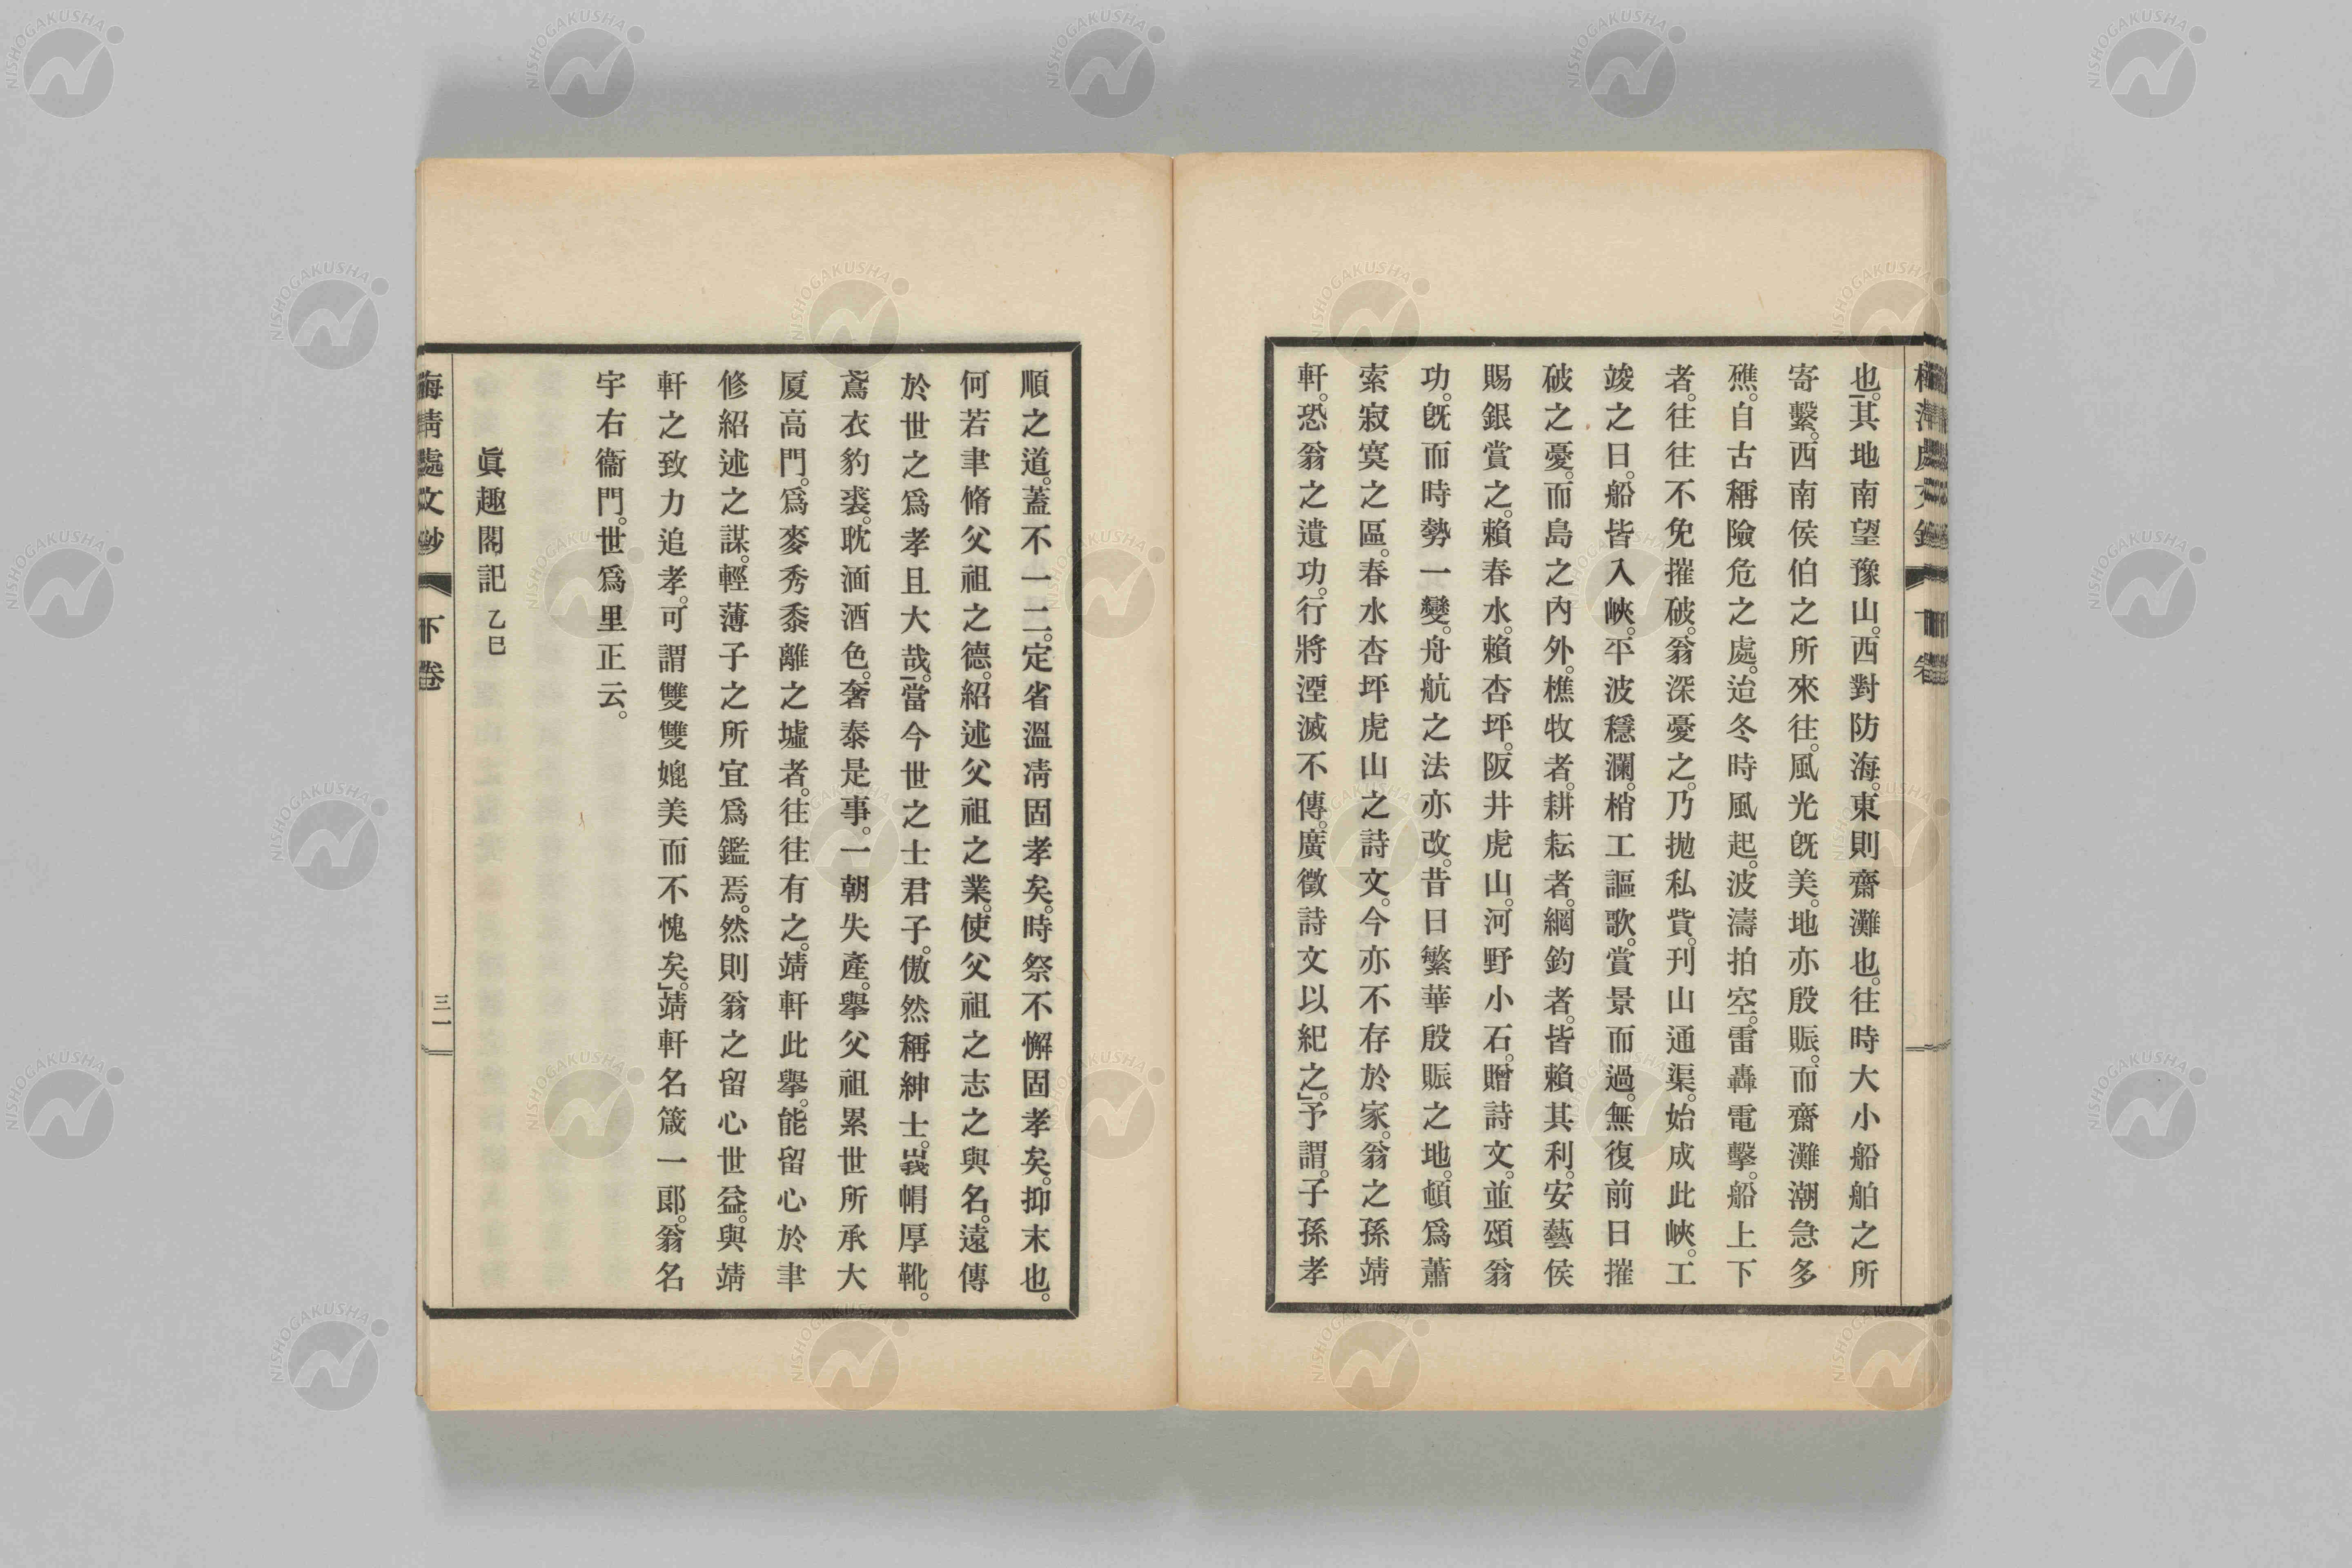 也。其地南望豫山。西對防海。東則齋灘也。往時大小船舶之所
寄繫。西南侯伯之所來往。風光既美。地亦殷賑。而齋灘潮急多
礁。自古稱險危之處。迨冬時風起。波濤拍空。雷轟電擊。船上下
者。往往不免摧破。翁深憂之。乃拋私貲。刊山通渠。始成此峽。工
竣之日。船皆入峽。平波穩瀾。梢工謳歌。賞景而過。無復前日摧
破之憂。而島之內外。樵牧者。耕耘者。網釣者。皆賴其利。安藝侯
賜銀賞之。賴春水。賴杏坪。阪井虎山。河野小石。贈詩文。並頌翁
功。既而時勢一變。舟航之法亦改。昔日繁華殷賑之地。頓爲蕭
索寂寞之區。春水杏坪虎山之詩文。今亦不存於家。翁之孫靖
軒。恐翁之遺功。行將湮滅不傳。廣徵詩文以紀之。」予謂。子孫孝
順之道。蓋不一二。定省溫凊固孝矣。時祭不懈固孝矣。抑末也。
何若聿脩父祖之德。紹述父祖之業。使父祖之志之與名。遠傳
於世之爲孝且大哉。當今世之士君子。傲然稱紳士。峩帽厚靴。
鳶衣豹裘。耽湎酒色。奢泰是事。一朝失產。擧父祖累世所承大
厦高門。爲麥秀黍離之墟者。往往有之。靖軒此擧。能留心於聿
修紹述之謀。輕薄子之所宜爲鑑焉。然則翁之留心世益。與靖
軒之致力追孝。可謂雙雙媲美而不愧矣。」靖軒名箴一郎。翁名
宇右衞門。世爲里正云。
眞趣閣記 乙巳
梅淸處文鈔 下卷 三一